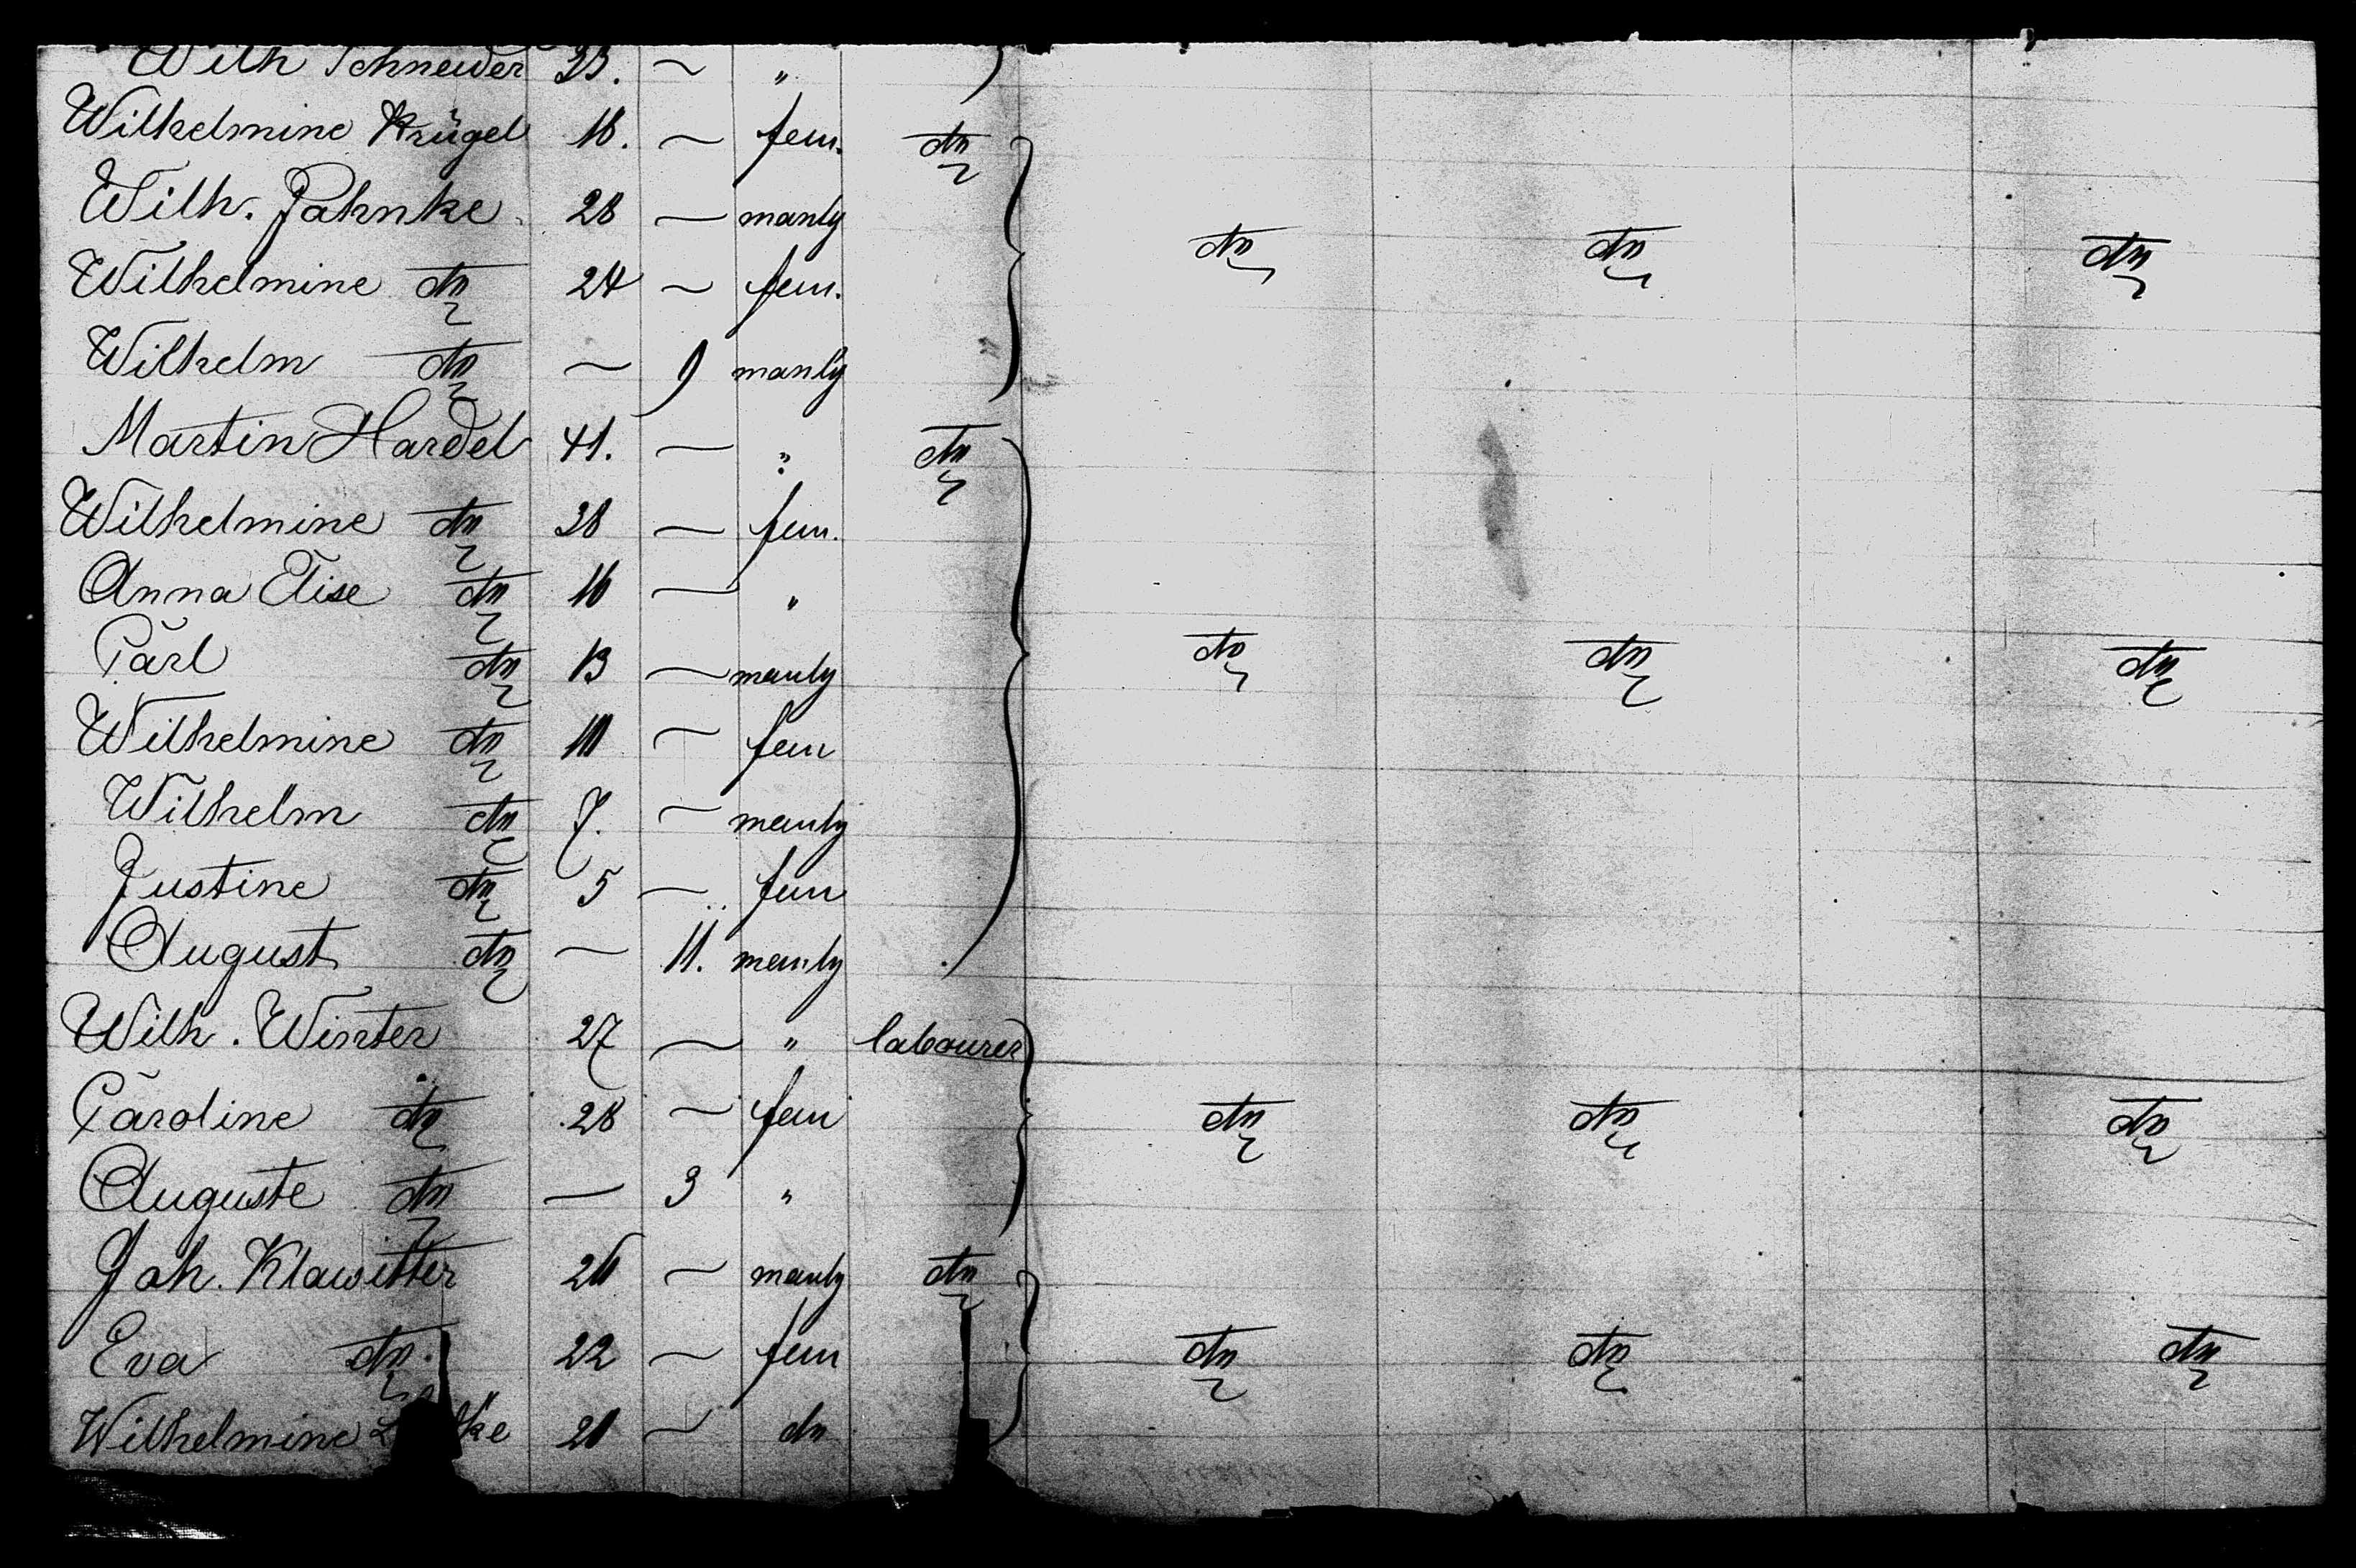 Wilh Schneider 23. — "
Wilhelmine Krügel 18. — fem. do
Wilh. Jahnke 28 — manly do do do
Wilhelmine do 24 — fem.
Wilhelm do — 9 manly
Martin Hardel 41. — " do
Wilhelmine do 38 — fem.
Anna Elise do 16 — "
Carl do 13 — manly do do do
Wilhelmine do — fem
Wilhelm do 7. — manly
Justine do 5 — fem
August do — 11. manly
Wilh. Winter 27 — " labourer
Caroline do 28 — fem do do do
Auguste do — 3 "
Joh. Klawitter 26 — manly do
Eva do 22 — fem do do do
Wilhelmine — do